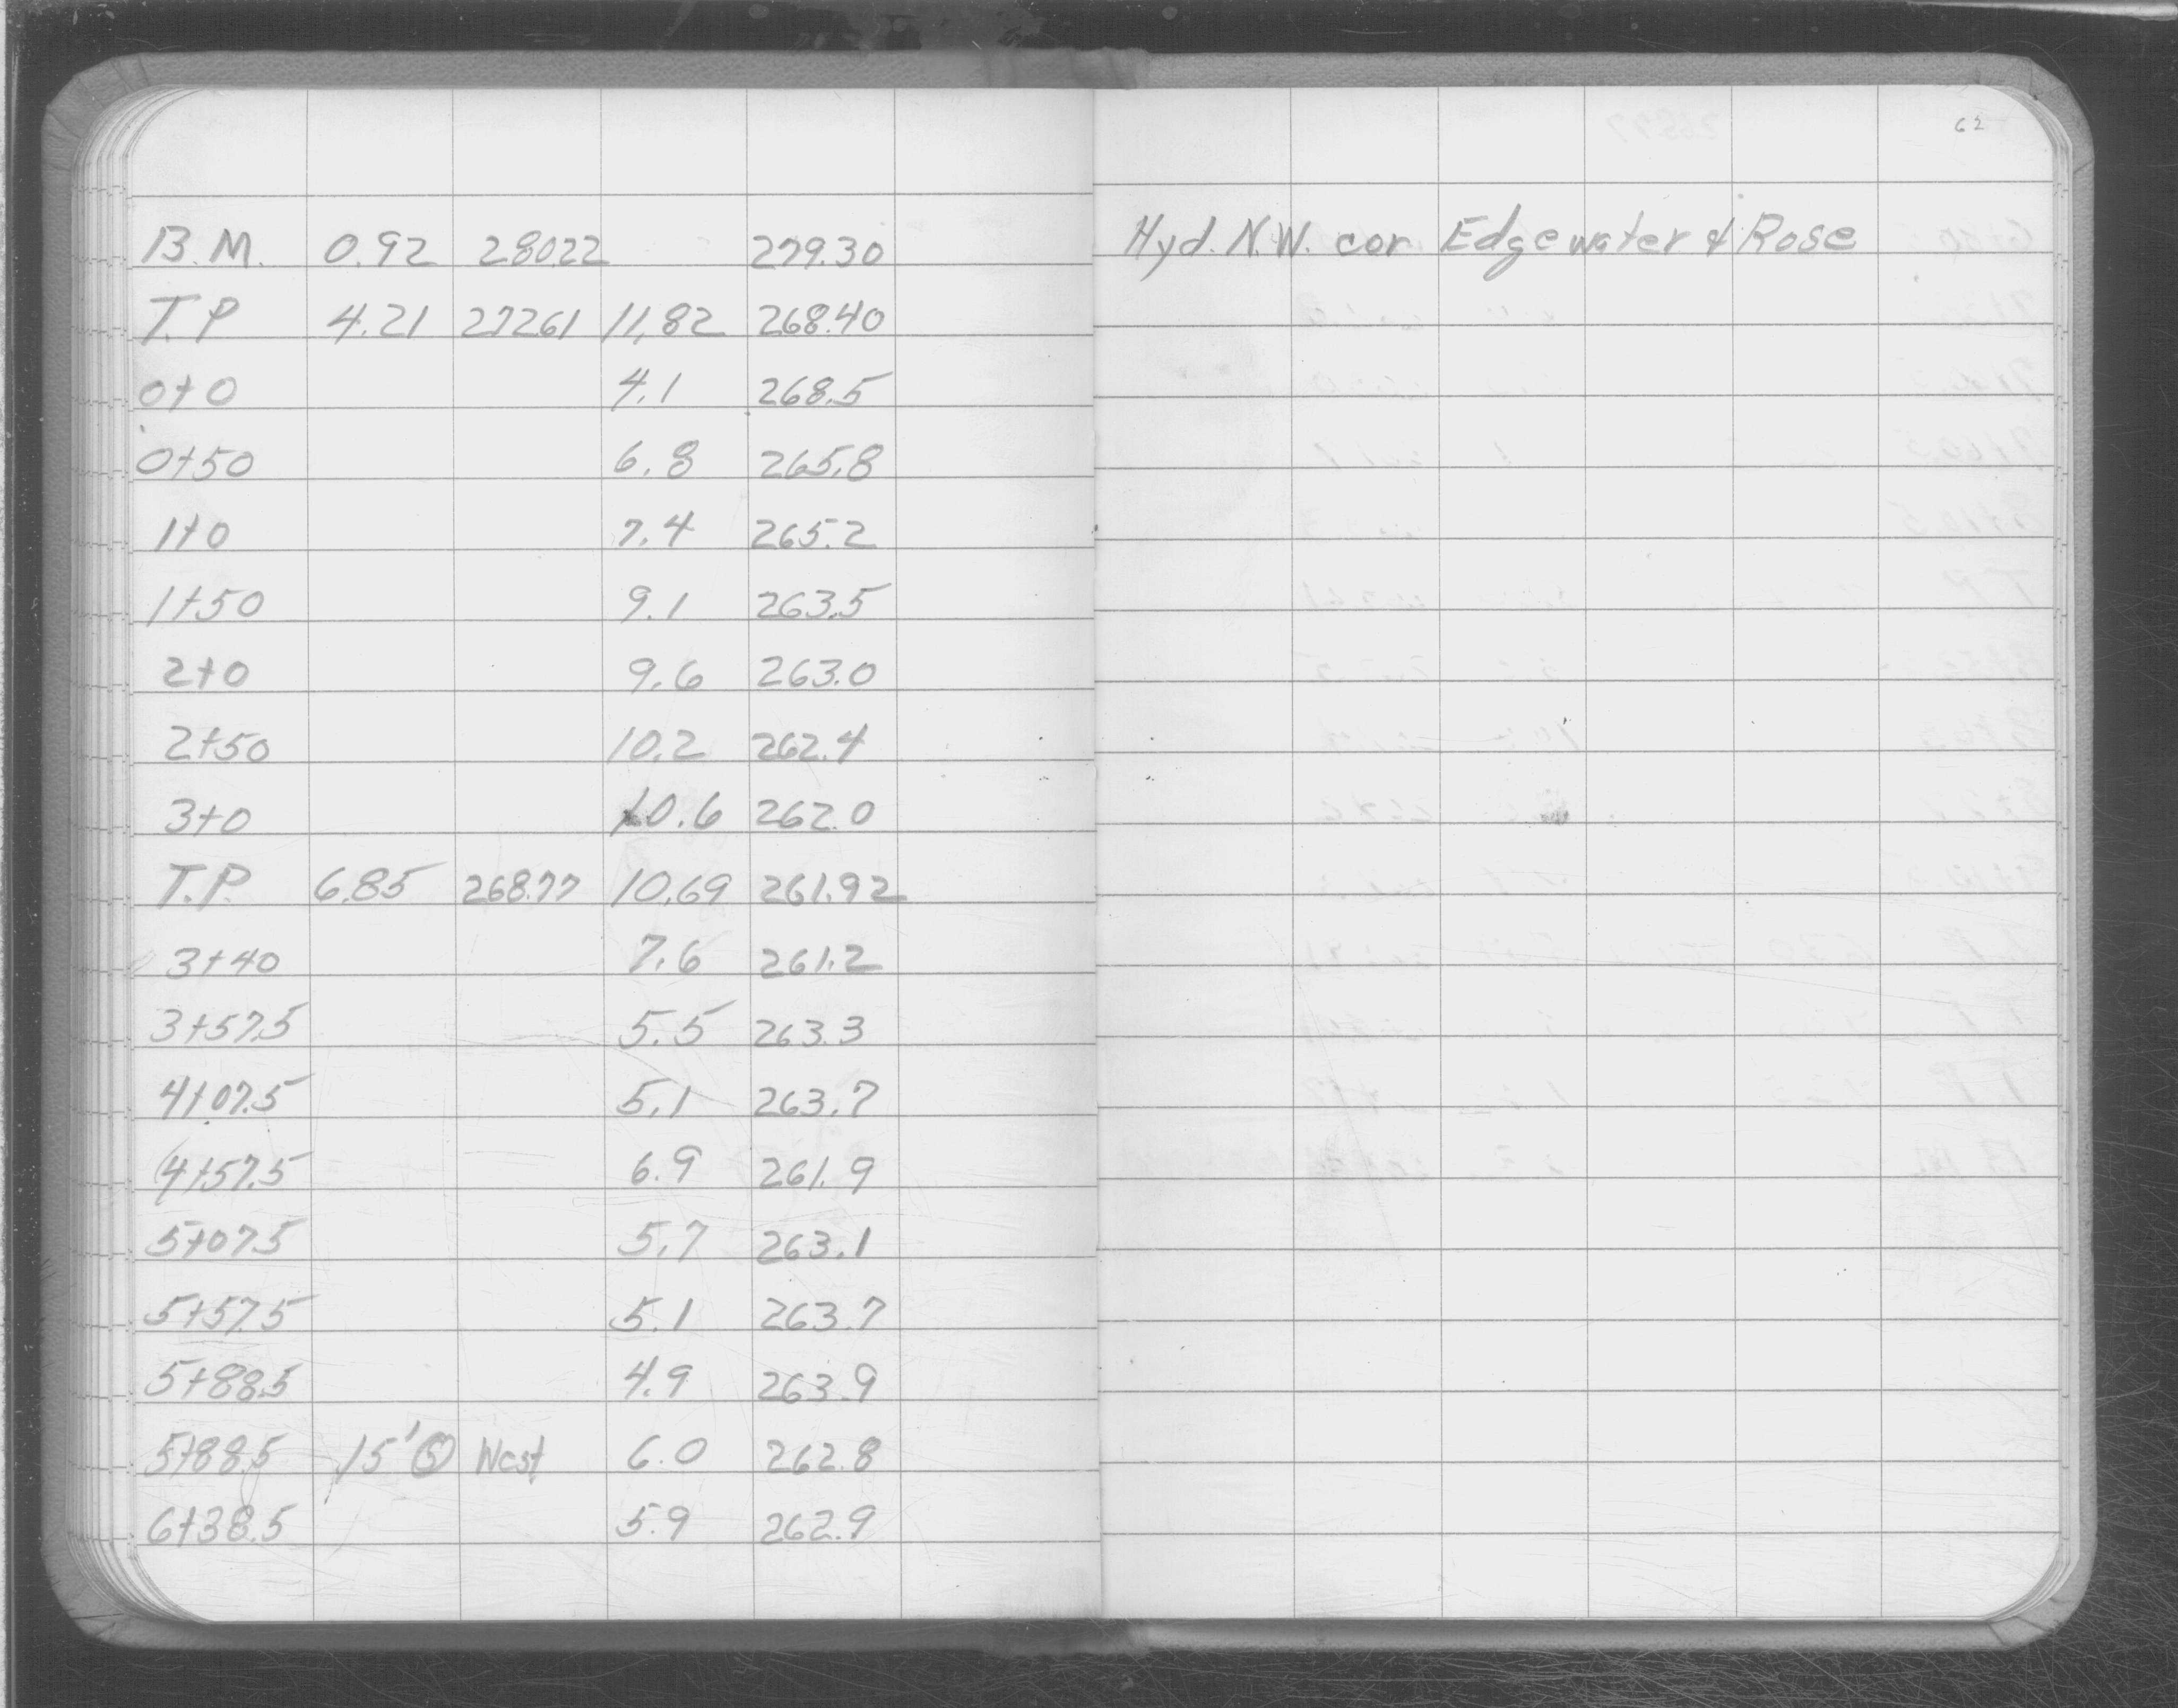 62
B.M. 0.92 280.22 279.30 Hyd. N.W. cor Edgewater & Rose
T.P 4.21 272.61 11.82 268.40
0+0 4.1 268.5
0+50 6.8 265.8
1+0 7.4 265.2
1+50 9.1 263.5
2+0 9.6 263.0
2+50 10.2 262.4
3+0 10.6 262.0
T.P. 6.85 268.77 10.69 261.92
3+40 7.6 261.2
3+57.5 5.5 263.3
4+07.5 5.1 263.7
4+57.5 6.9 261.9
5+07.5 5.7 263.1
5+57.5 5.1 263.7
5+88.5 4.9 263.9
5+88.5 15' West 6.0 262.8
6+38.5 5.9 262.9